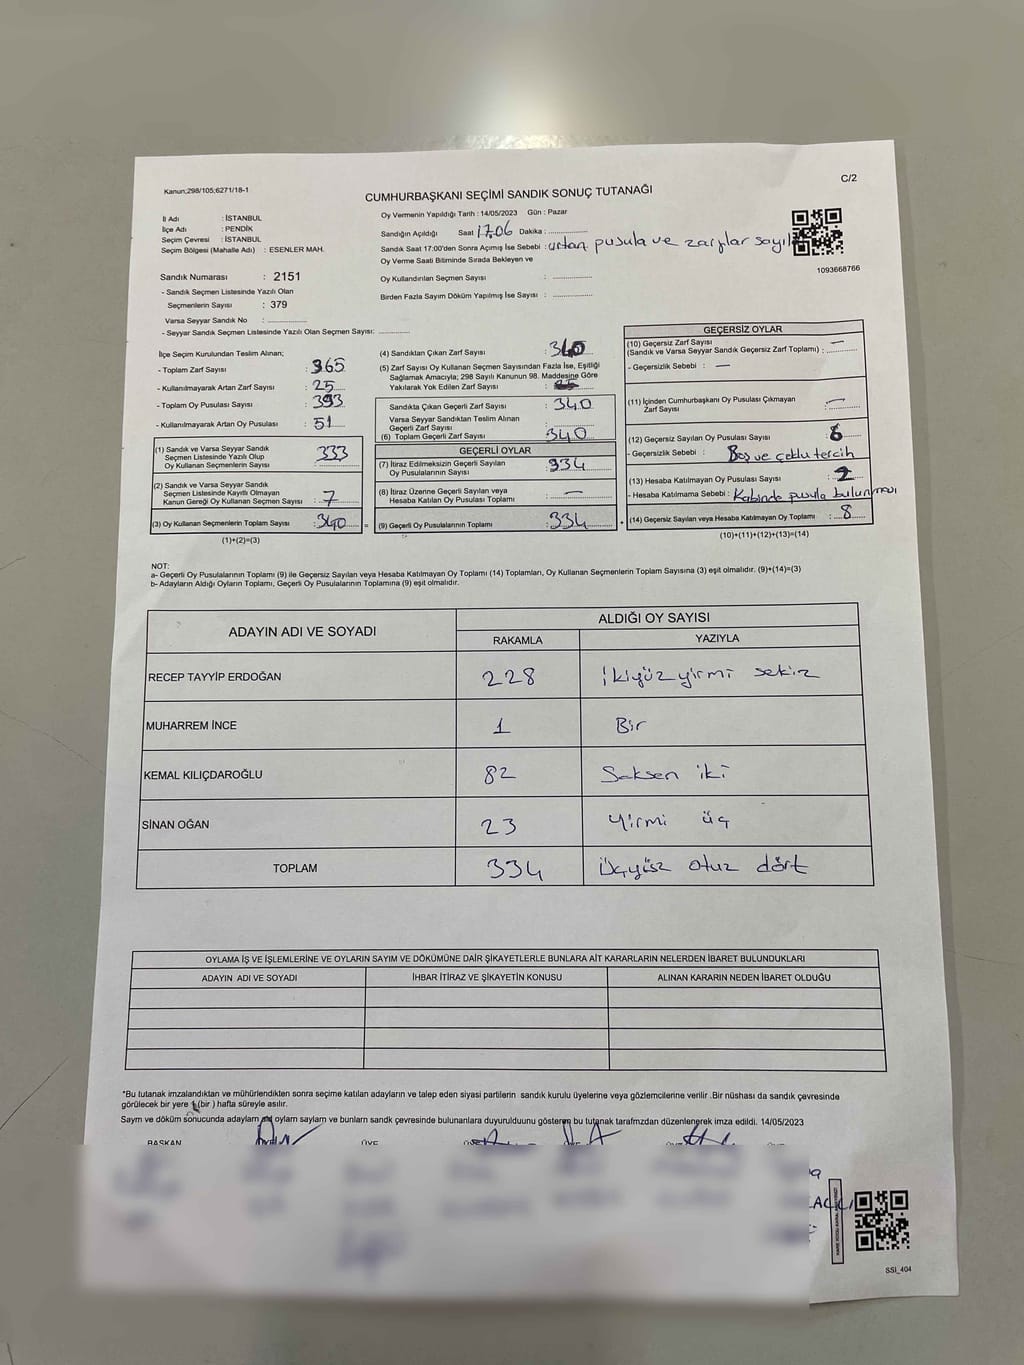 Kanun;298/105;6271/18-1
C/2
CUMHURBAŞKANI SEÇİMİ SANDIK SONUÇ TUTANAĞI
İl Adı : İSTANBUL
İlçe Adı : PENDİK
Seçim Çevresi : İSTANBUL
Seçim Bölgesi (Mahalle Adı) : ESENLER MAH.
Oy Vermenin Yapıldığı Tarih : 14/05/2023 Gün : Pazar
Sandığın Açıldığı Saat 17.06 Dakika : ...............
Sandık Saat 17:00'den Sonra Açımış İse Sebebi : artan pusula ve zarflar
Oy Verme Saati Bitiminde Sırada Bekleyen ve
Oy Kullandırılan Seçmen Sayısı : ...............
Birden Fazla Sayım Döküm Yapılmış İse Sayısı : ...............
1093668766
Sandık Numarası : 2151
- Sandık Seçmen Listesinde Yazılı Olan
Seçmenlerin Sayısı : 379
Varsa Seyyar Sandık No : ...............
- Seyyar Sandık Seçmen Listesinde Yazılı Olan Seçmen Sayısı: ............
İlçe Seçim Kurulundan Teslim Alınan;
- Toplam Zarf Sayısı : 365
- Kullanılmayarak Artan Zarf Sayısı : 25
- Toplam Oy Pusulası Sayısı : 393
- Kullanılmayarak Artan Oy Pusulası Sayısı : 51
(1) Sandık ve Varsa Seyyar Sandık
Seçmen Listesinde Yazılı Olup
Oy Kullanan Seçmenlerin Sayısı : 333
(2) Sandık ve Varsa Seyyar Sandık
Seçmen Listesinde Kayıtlı Olmayan
Kanun Gereği Oy Kullanan Seçmen Sayısı : 7
(3) Oy Kullanan Seçmenlerin Toplam Sayısı : 340 =
(1)+(2)=(3)
(4) Sandıktan Çıkan Zarf Sayısı : 340
(5) Zarf Sayısı Oy Kullanan Seçmen Sayısından Fazla İse, Eşitliği
Sağlamak Amacıyla; 298 Sayılı Kanunun 98. Maddesine Göre
Yakılarak Yok Edilen Zarf Sayısı :
Sandıkta Çıkan Geçerli Zarf Sayısı : 340
Varsa Seyyar Sandıktan Teslim Alınan
Geçerli Zarf Sayısı :
(6) Toplam Geçerli Zarf Sayısı 340
GEÇERLİ OYLAR
(7) İtiraz Edilmeksizin Geçerli Sayılan
Oy Pusulalarının Sayısı : 334
(8) İtiraz Üzerine Geçerli Sayılan veya
Hesaba Katılan Oy Pusulası Toplamı : —
(9) Geçerli Oy Pusulalarının Toplamı : 334 +
GEÇERSİZ OYLAR
(10) Geçersiz Zarf Sayısı
(Sandık ve Varsa Seyyar Sandık Geçersiz Zarf Toplamı) : —
- Geçersizlik Sebebi : —
(11) İçinden Cumhurbaşkanı Oy Pusulası Çıkmayan
Zarf Sayısı : —
(12) Geçersiz Sayılan Oy Pusulası Sayısı : 6
- Geçersizlik Sebebi : Boş ve çoklu tercih
(13) Hesaba Katılmayan Oy Pusulası Sayısı : 2
- Hesaba Katılmama Sebebi : Kabinde pusula bulunması
(14) Geçersiz Sayılan veya Hesaba Katılmayan Oy Toplamı : 8
(10)+(11)+(12)+(13)=(14)
NOT:
a- Geçerli Oy Pusulalarının Toplamı (9) ile Geçersiz Sayılan veya Hesaba Katılmayan Oy Toplamı (14) Toplamları, Oy Kullanan Seçmenlerin Toplam Sayısına (3) eşit olmalıdır. (9)+(14)=(3)
b- Adayların Aldığı Oyların Toplamı, Geçerli Oy Pusulalarının Toplamına (9) eşit olmalıdır.
ADAYIN ADI VE SOYADI
ALDIĞI OY SAYISI
RAKAMLA YAZIYLA
RECEP TAYYİP ERDOĞAN 228 İkiyüzyirmi sekiz
MUHARREM İNCE 1 Bir
KEMAL KILIÇDAROĞLU 82 Seksen iki
SİNAN OĞAN 23 Yirmi üç
TOPLAM 334 Üçyüz otuz dört
OYLAMA İŞ VE İŞLEMLERİNE VE OYLARIN SAYIM VE DÖKÜMÜNE DAİR ŞİKAYETLERLE BUNLARA AİT KARARLARIN NELERDEN İBARET BULUNDUKLARI
ADAYIN ADI VE SOYADI İHBAR İTİRAZ VE ŞİKAYETİN KONUSU ALINAN KARARIN NEDEN İBARET OLDUĞU
*Bu tutanak imzalandıktan ve mühürlendikten sonra seçime katılan adayların ve talep eden siyasi partilerin sandık kurulu üyelerine veya gözlemcilerine verilir .Bir nüshası da sandık çevresinde
görülecek bir yere 1 (bir ) hafta süreyle asılır.
Sayım ve döküm sonucunda adayların oyların sayların ve bunların sandk çevresinde bulunanlara duyurulduunu gösteren bu tutanak tarafmzdan düzenlenerek imza edildi. 14/05/2023
BAŞKAN ÜYE
SSI_404